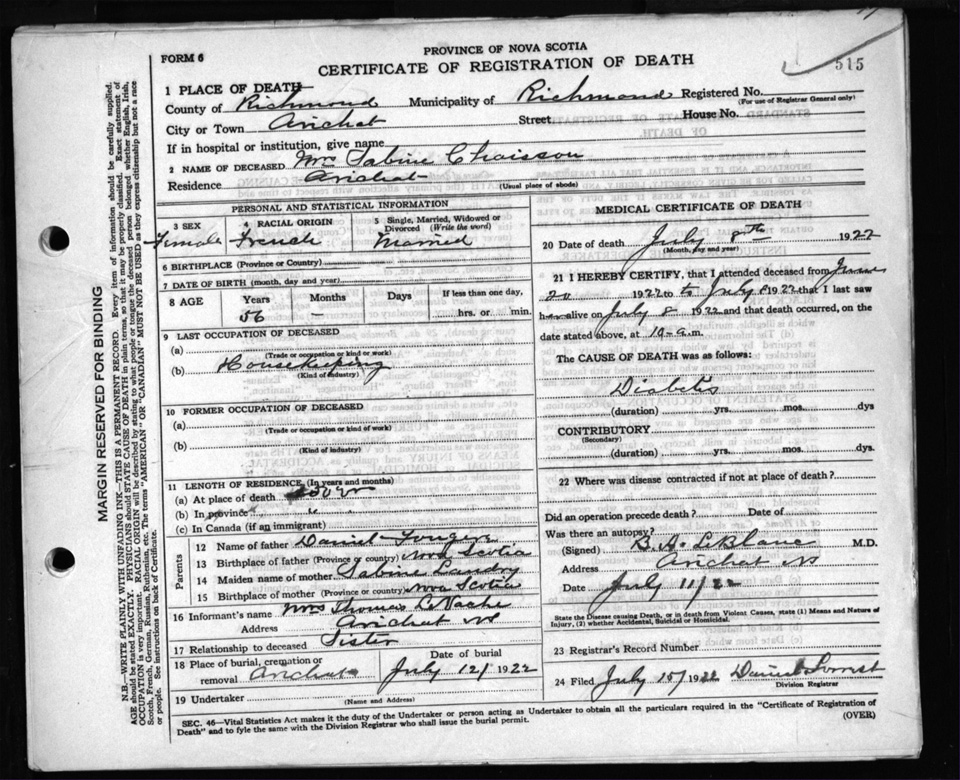 PROVINCE OF NOVA SCOTIA
FORM 6
CERTIFICATE OF REGISTRATION OF DEATH
515
1 PLACE OF DEATH—
County of Richmond Municipality of Richmond Registered No.
(For use of Registrar General only)
City or Town Arichat Street House No.
If in hospital or institution, give name
2 NAME OF DECEASED Mrs Sabine Chaisson
Residence Arichat
(Usual place of abode)
PERSONAL AND STATISTICAL INFORMATION
3 SEX 4 RACIAL ORIGIN 5 Single, Married, Widowed or
Divorced (Write the word)
Female French Married
6 BIRTHPLACE (Province or Country)
7 DATE OF BIRTH (month, day and year)
8 AGE Years Months Days If less than one day,
56 — hrs. or min.
9 LAST OCCUPATION OF DECEASED
(a)
(Trade or occupation or kind or work)
(b) Housekeeping
(Kind of industry)
10 FORMER OCCUPATION OF DECEASED
(a)
(Trade or occupation or kind of work)
(b)
(Kind of industry)
11 LENGTH OF RESIDENCE (In years and months)
(a) At place of death
(b) In province " "
(c) In Canada (if an immigrant)
Parents
12 Name of father Daniel
13 Birthplace of father (Province or country) Nova Scotia
14 Maiden name of mother Sabine Landry
15 Birthplace of mother (Province or country) Nova Scotia
16 Informant's name Mrs Thomas LeVache
Address Arichat NS
17 Relationship to deceased Sister
18 Place of burial, cremation or Date of burial
removal Arichat July 12/ 1922
19 Undertaker
(Name and Address)
MEDICAL CERTIFICATE OF DEATH
20 Date of death July 8th 1922
(Month, day and year)
21 I HEREBY CERTIFY, that I attended deceased from June
20 1922 to July 8 1922 that I last saw
h alive on July 8 1922 and that death occurred, on the
date stated above, at 10 a.m.
The CAUSE OF DEATH was as follows:
Diabetis
(duration) yrs. mos. dys
CONTRIBUTORY
(Secondary)
(duration) yrs. mos. dys
22 Where was disease contracted if not at place of death?
Did an operation precede death? Date of
Was there an autopsy?
(Signed) B. A. LeBlanc M.D.
Address Arichat NS
Date July 11/22
State the Disease Causing Death, or in death from Violent Causes, state (1) Means and Nature of
Injury, (2) whether Accidental, Suicidal or Homicidal.
23 Registrar's Record Number
24 Filed July 15/ 1922 Daniel
Division Registrar
SEC. 46—Vital Statistics Act makes it the duty of the Undertaker or person acting as Undertaker to obtain all the particulars required in the "Certificate of Registration of
Death" and to fyle the same with the Division Registrar who shall issue the burial permit.
(OVER)
MARGIN RESERVED FOR BINDING
N.B.—WRITE PLAINLY WITH UNFADING INK—THIS IS A PERMANENT RECORD. Every item of information should be carefully supplied.
AGE should be stated EXACTLY. PHYSICIANS should STATE CAUSE OF DEATH in plain terms, so that it may be properly classified. Exact statement of
OCCUPATION is very important. RACIAL ORIGIN will be described by stating to what people or tongue the deceased person belonged whether English, Irish,
Scotch, French, German, Russian, Ruthenian, etc. The terms "AMERICAN" or "CANADIAN" MUST NOT BE USED as they express citizenship but not a race
or people. See instructions on back of Certificate.